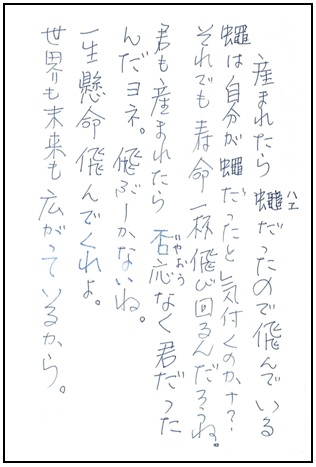 産まれたら蠅だったので飛んでいる
ハエ
蠅は自分が蠅だったと気付くのかナ?
それでも寿命一杯飛び回るんだろうね。
君も産まれたら否応なく君だった
いやおう
んだヨネ。飛ぶしかないね。
一生懸命飛んでくれよ。
世界も未来も広がっているから。